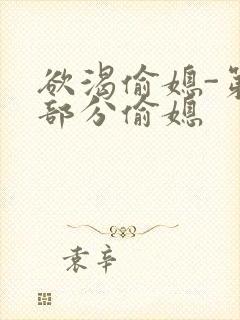 欲渴偷媳-第
部分偷媳
袁辛